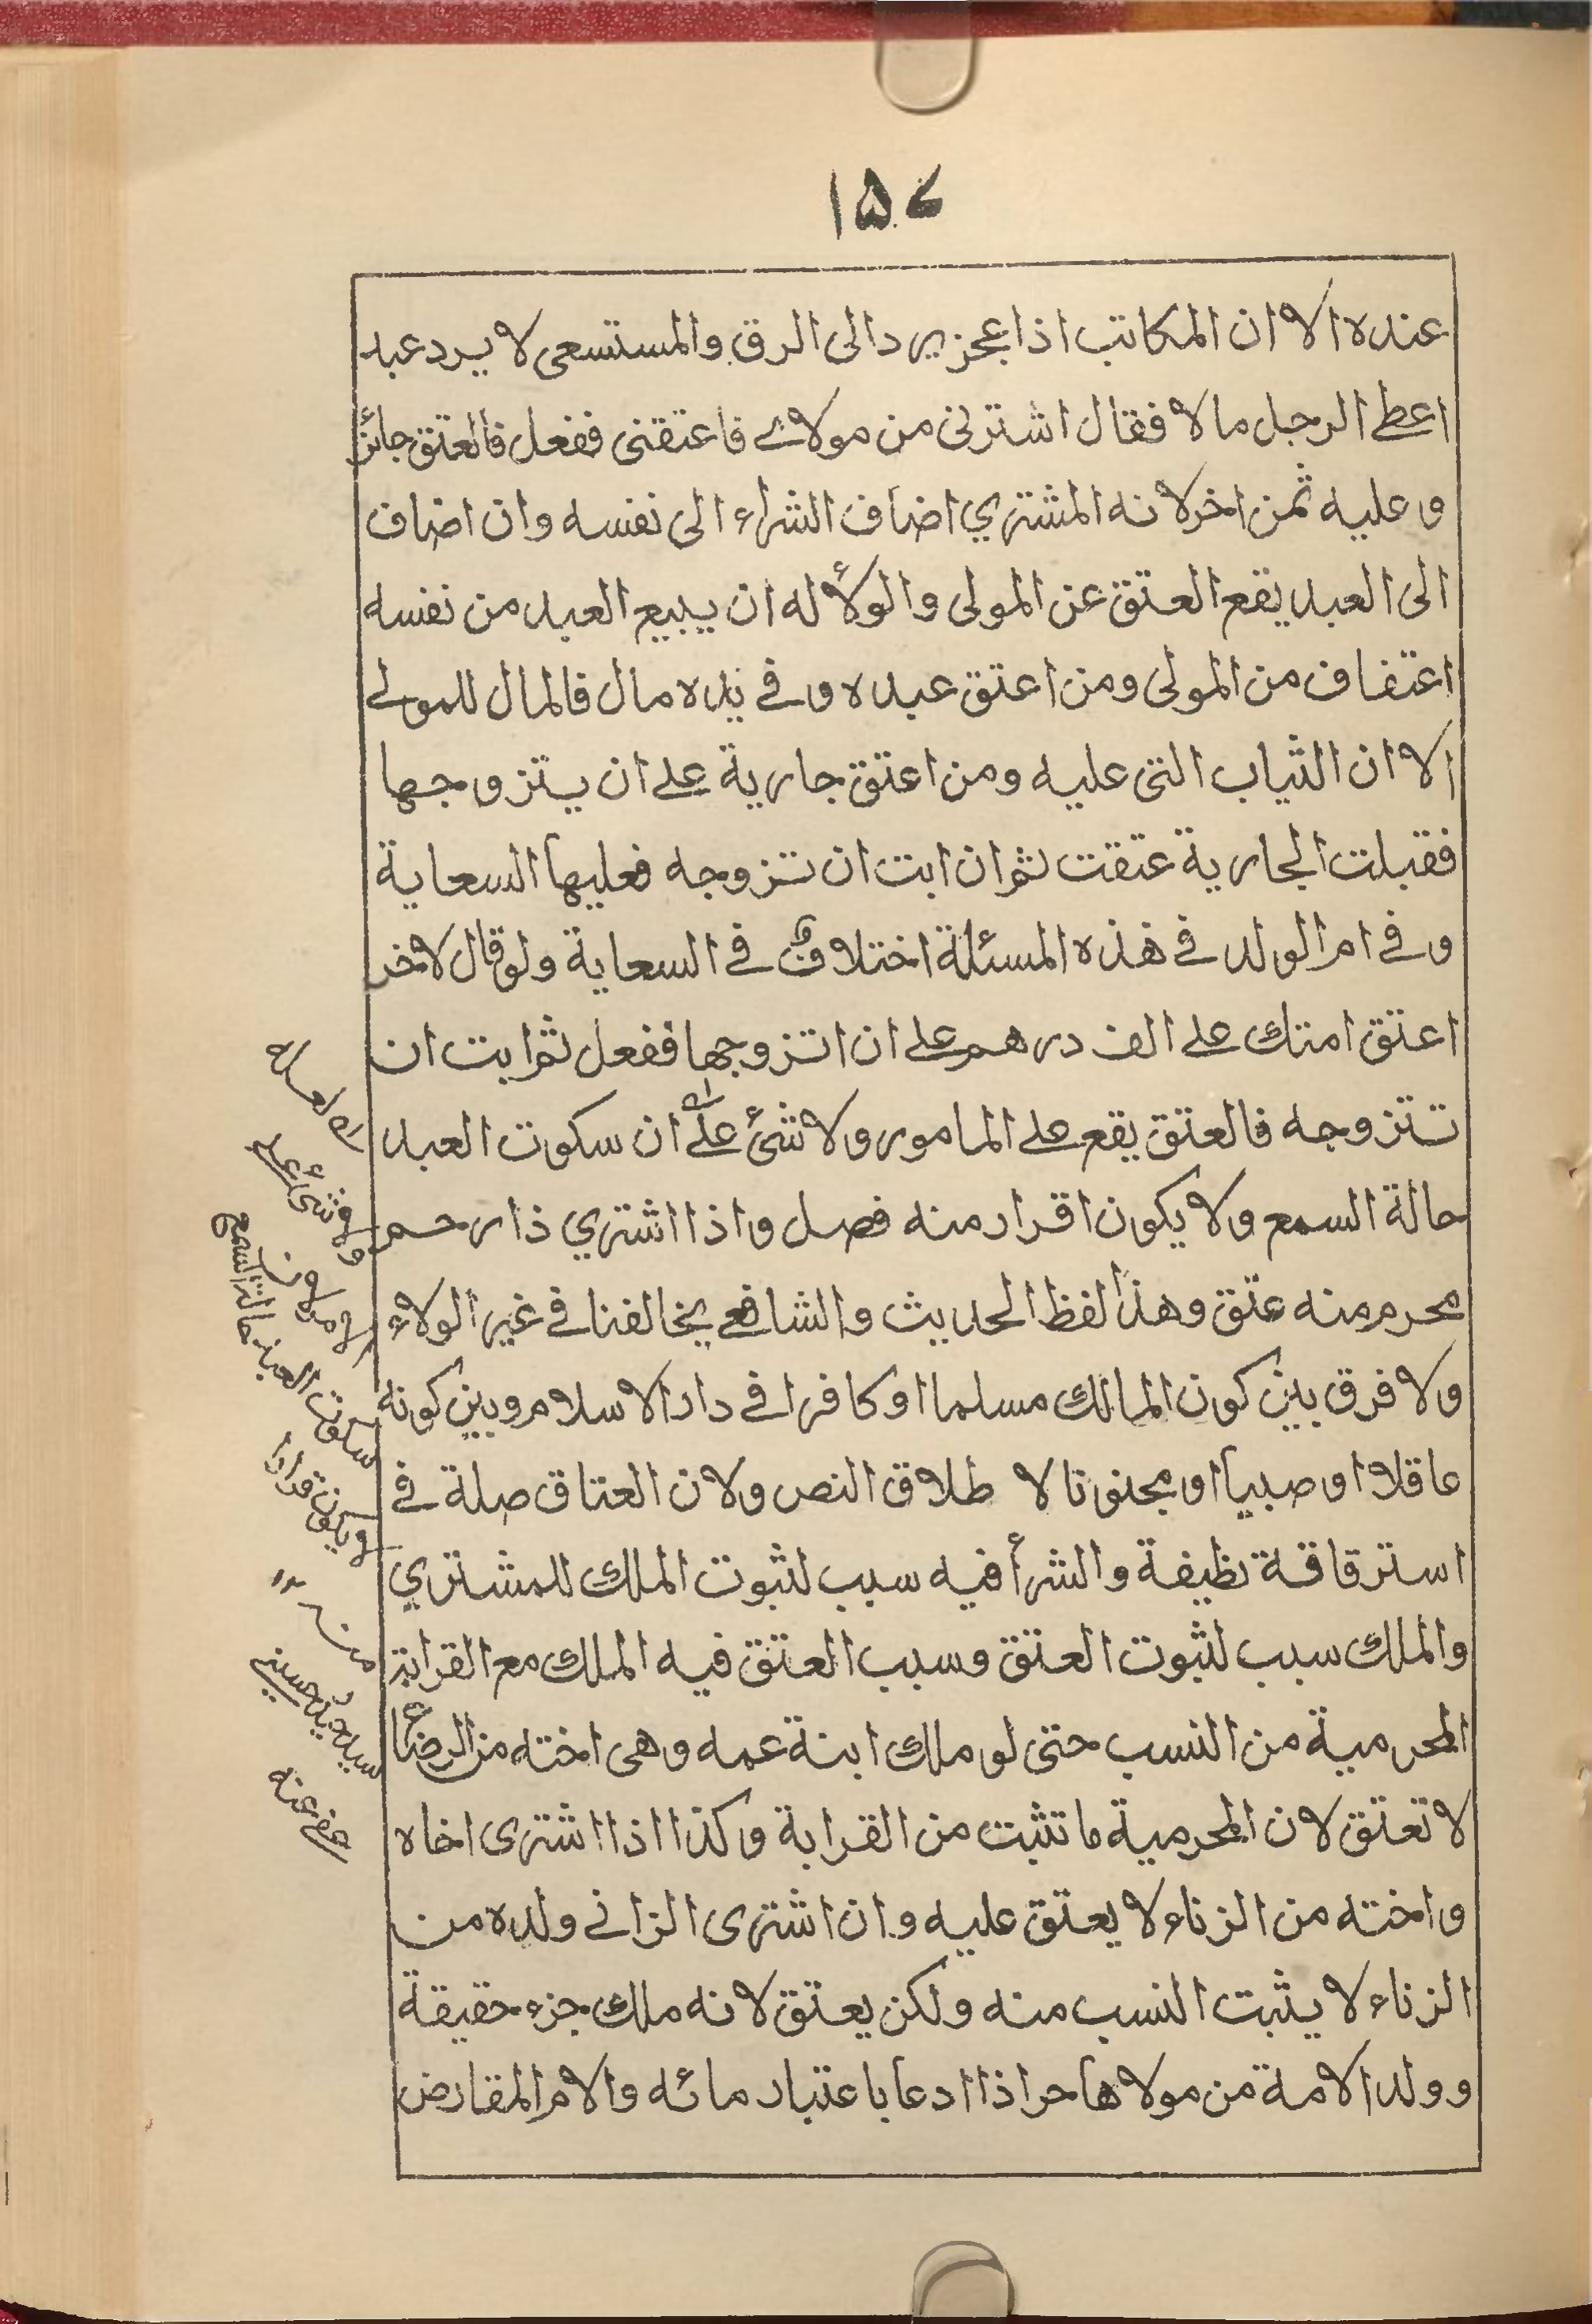 ۱۵۷
عنده الا ان المكاتب اذا عجز يرد الى الرق والمستسعى لا يرد عبد
اعطى الرجل مالا فقال اشترنى من مولاى فاعتقنى ففعل فالعتق جائز
وعليه ثمن اخر لانه المشتري اضاف الشراء الى نفسه وان اضاف
الى العبد يقع العتق عن المولى والولأ له ان يبيع العبد من نفسه
اعتفاف من المولى ومن اعتق عبده وفى يده مال فالمال للمولى
الا ان الثياب التى عليه ومن اعتق جارية على ان يتزوجها
فقبلت الجارية عتقت ثم ان ابت ان تزوجه فعليها السعاية
وفى ام الولد فى هذه المسئلة اختلاف فى السعاية ولو قال لاخر
اعتق امتك على الف درهم على ان اتزوجها ففعل ثم ابت ان
تتزوجه فالعتق يقع على المامور ولا شئ على ان سكوت العبد
حالة السمع ولا يكون اقرار منه فصل واذا اشتري ذا رحم
محرم منه عتق وهذا لفظ الحديث والشافعى يخالفنا فى غير الولاء
ولا فرق بين كون المالك مسلما او كافرا فى دار الاسلام وبين كونه
عاقلا او صبيا او مجنونا لا طلاق النص ولان العتاق صلة فى
استرقاقة نظيفة والشرأ فيه سبب لثبوت الملك للمشتري
والملك سبب لثبوت العتق وسبب العتق فيه الملك مع القرابة
المحرمية من النسب حتى لو ملك ابنة عمه وهى اخته من الرضاع
لا تعتق لان المحرمية ما تثبت من القرابة وكذا اذا اشترى اخاه
واخته من الزناء لا يعتق عليه وان اشترى الزانى ولده من
الزناء لا يثبت النسب منه ولكن يعتق لانه ملك جزء حقيقة
وولد الامة من مولاها حر اذا ادعا باعتبار مائه والام المقارض
ولا شئ على
سكوت العبد حالة السمع
لا يكون اقرارا
منه ۱۲
حسينى
عفى عنه